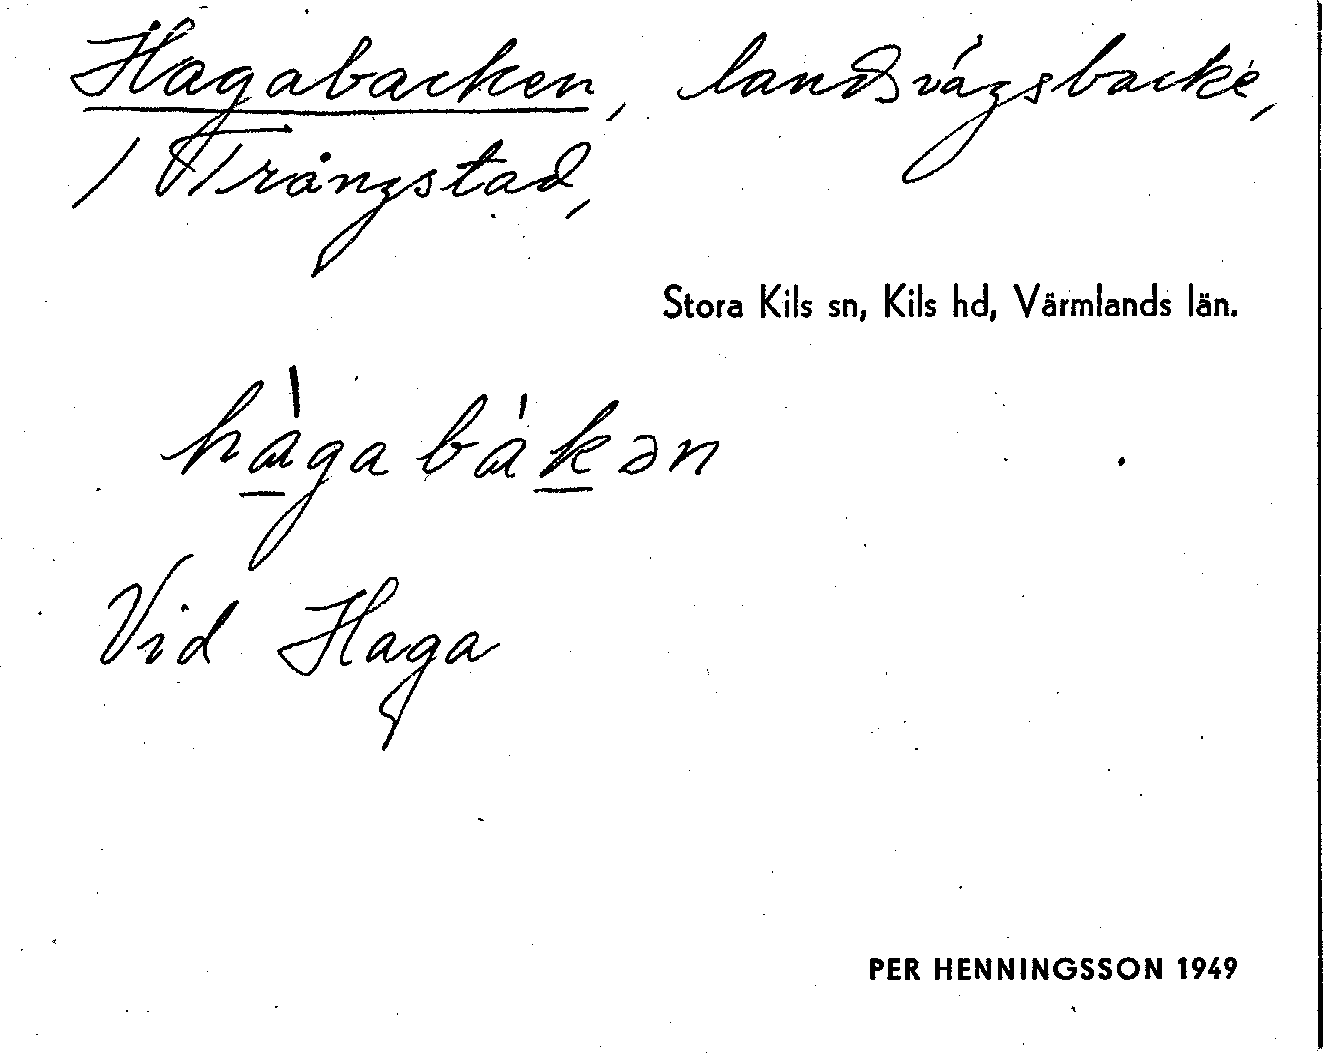 Hagabacken, landsvägsbacke,
/ Trångstad,
Stora Kils sn, Kils hd, Värmlands län.
hàgabákən
Vid Haga
PER HENNINGSSON 1949